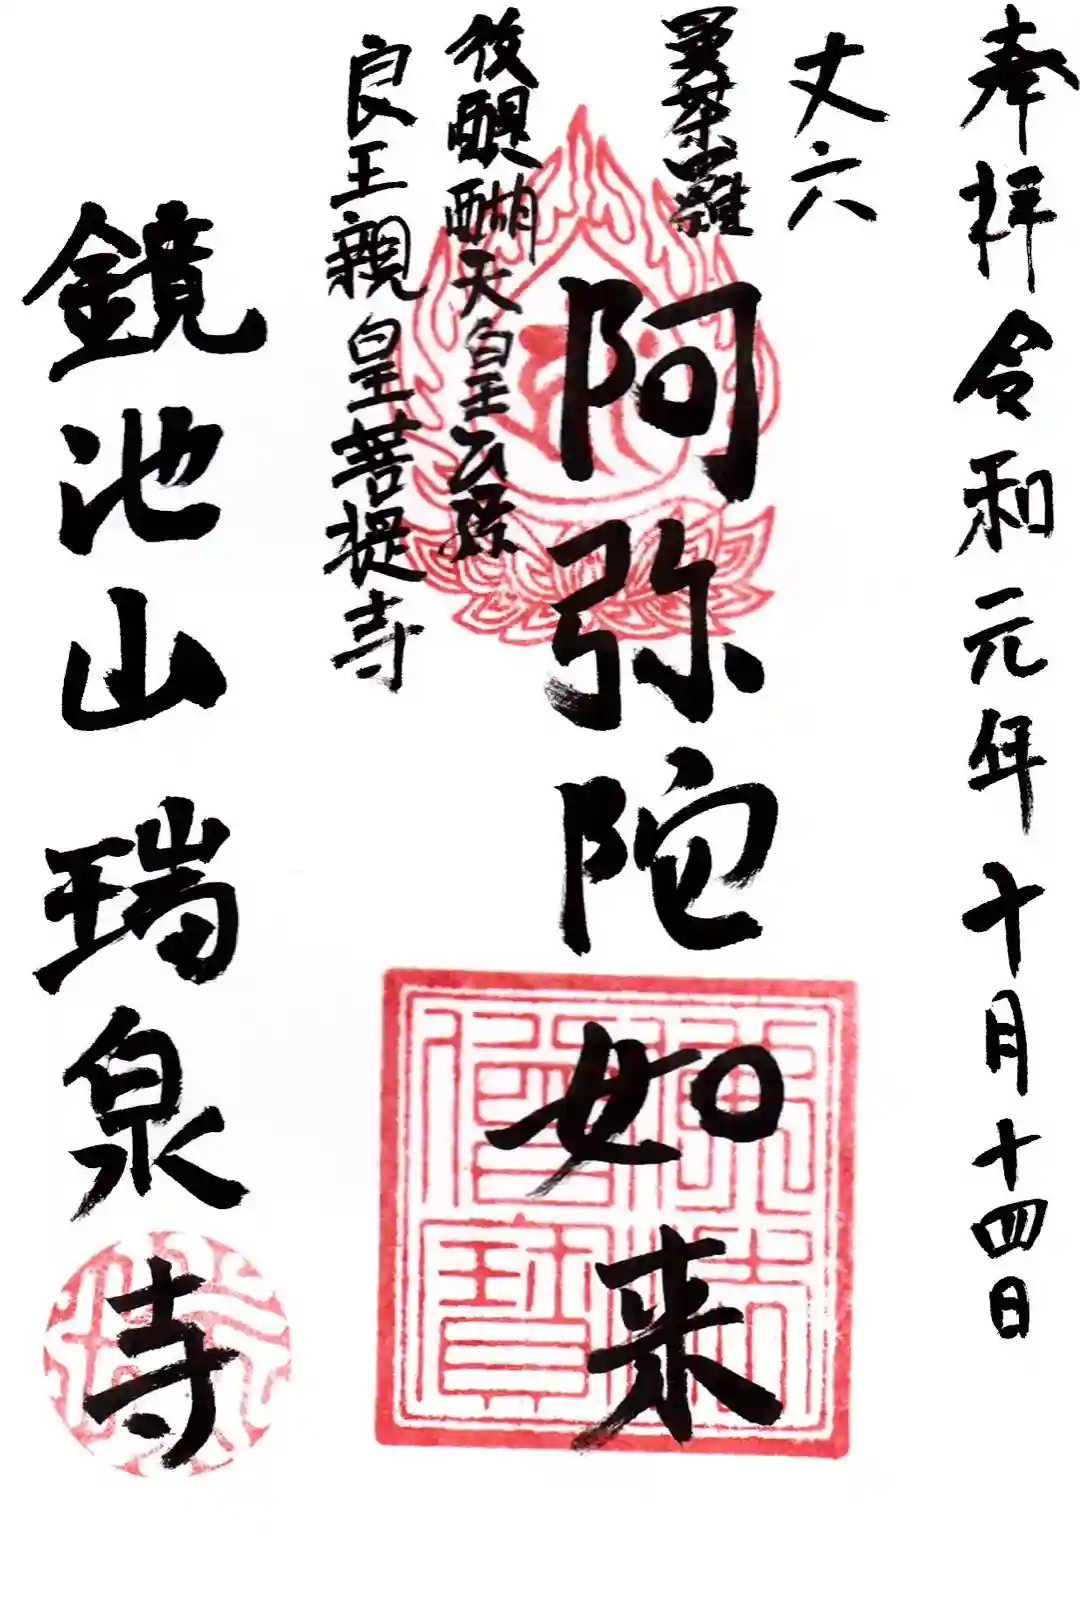 奉拝令和元年十月十四日
丈六
曼荼羅
阿弥陀如来
後醍醐天皇玄孫
良王親皇菩提寺
鏡池山瑞泉寺
佛法僧寶